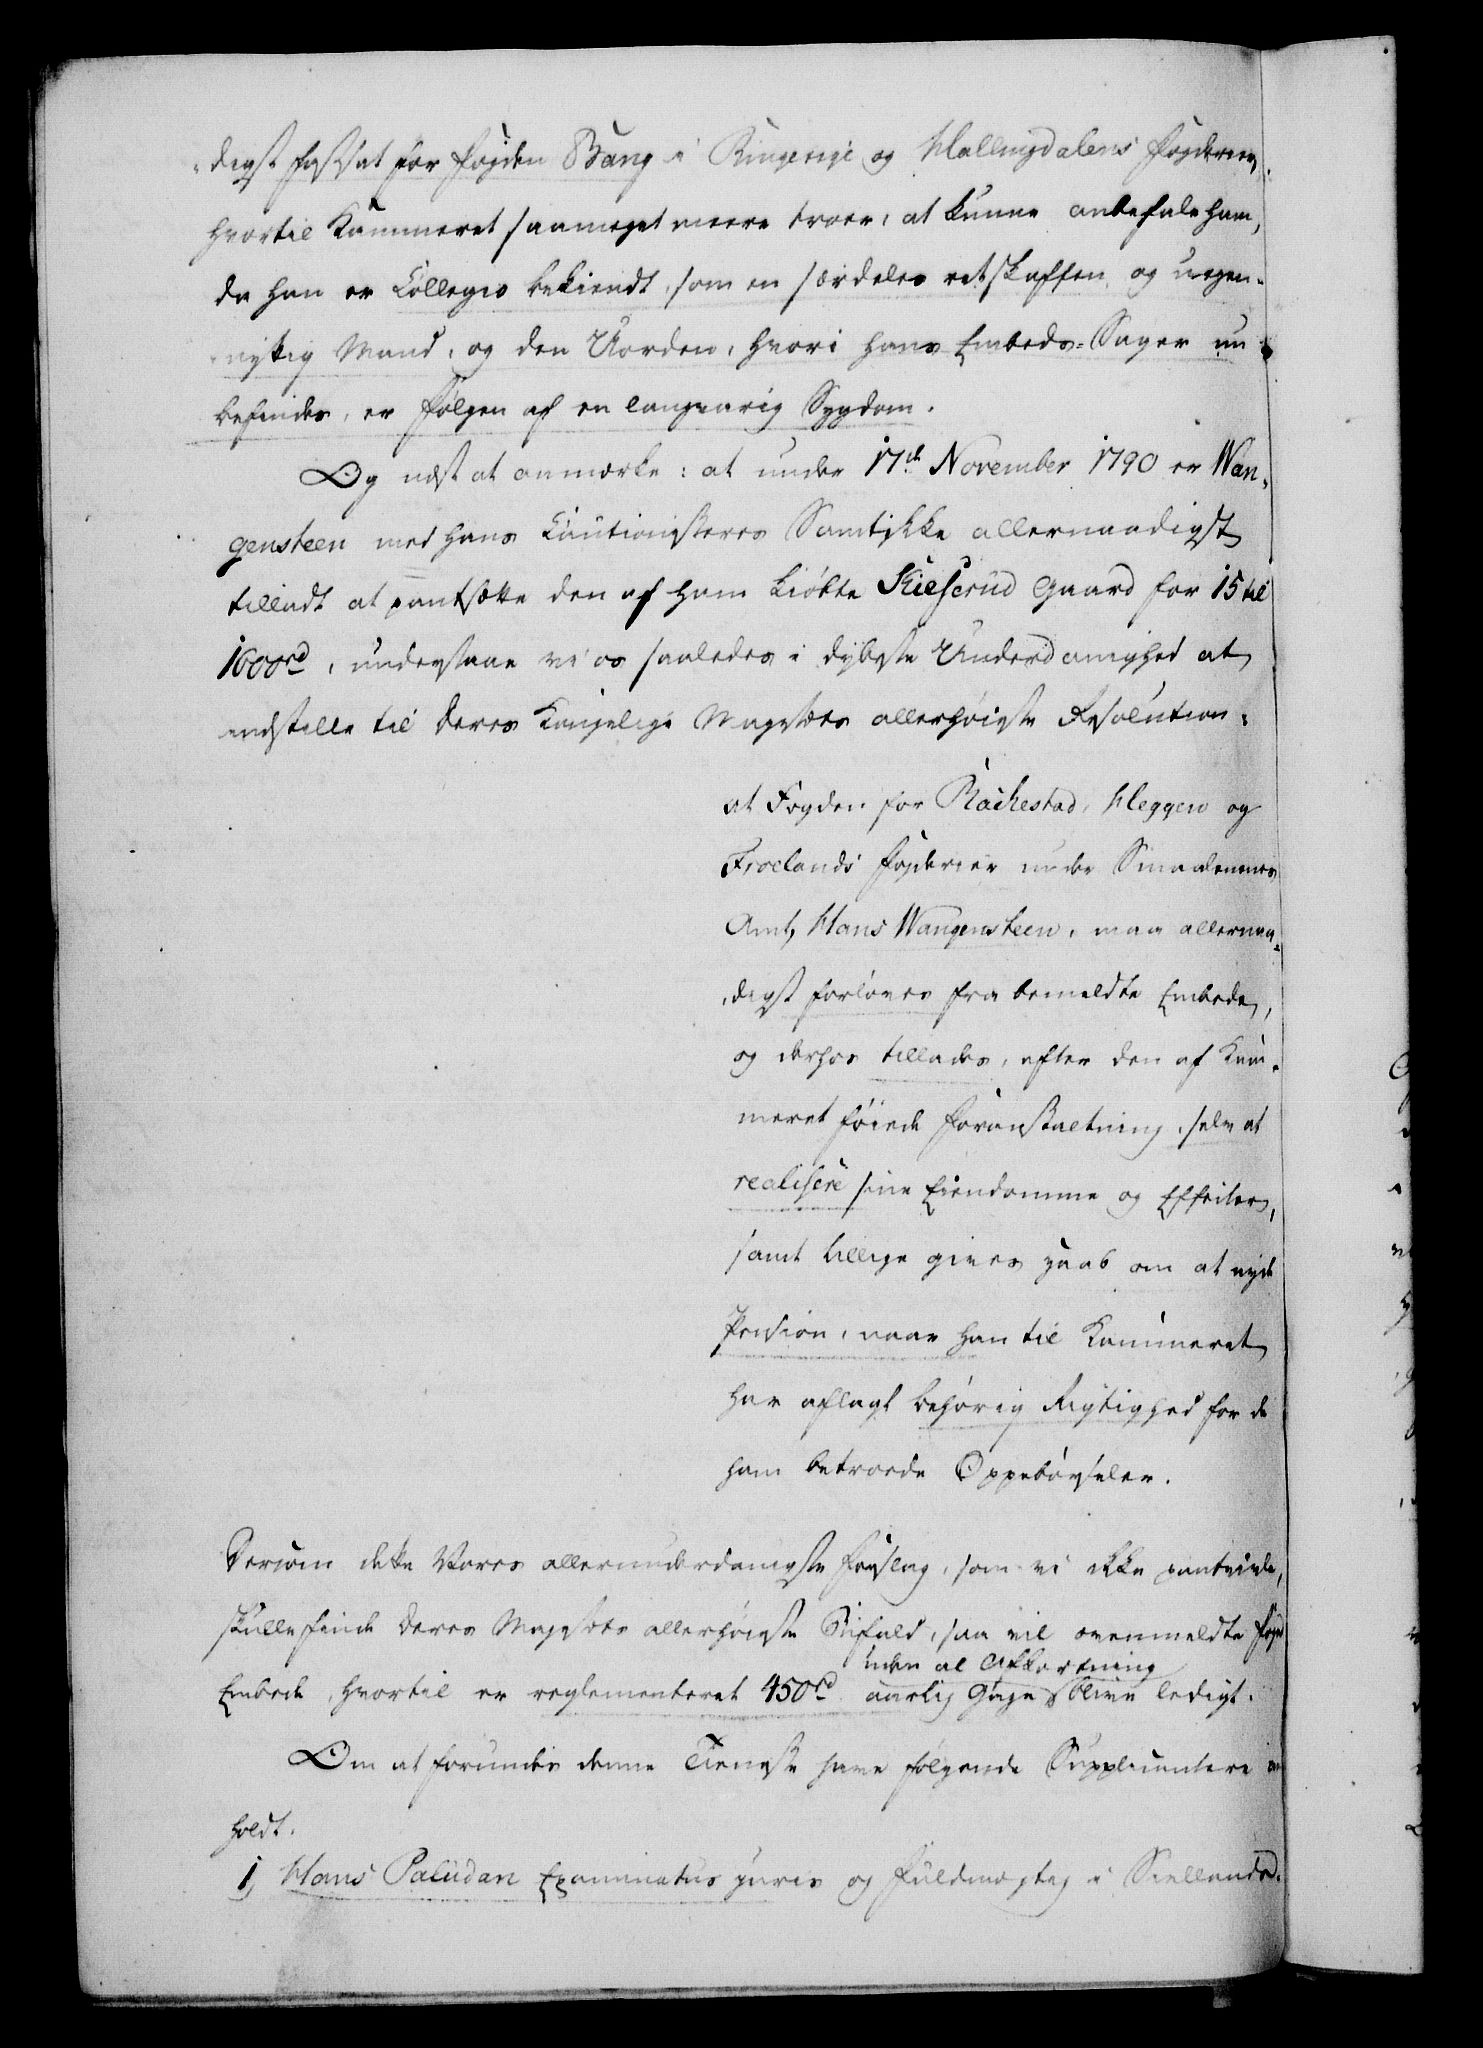 digst fastsat for Fogden Bang i Ringerige og Hallingdalens Fogderier,
hvortil Kammeret saameget meere troer, at kunne anbefale ham,
da han er Collegio bekiendt, som en særdeles retskaffen og uegen-
nyttig Mand, og den Uorden, hvori hans Embeds-Sager nu
befindes, er Følgen af en langvarig Sygdom.
Og næst at anmærke: at under 17de November 1790 er Wan-
gensteen med hans Cautionisteres Samtykke allernaadigst
tilladt at pantsætte den af ham kiøbte Kielserud Gaard for 15 til
1600rd, understaae vi os saaledes i dybeste Underdanighed at
indstille til Deres Kongelige Majestæts allerhøieste Resolution:
at Fogden for Rackestad, Heggen og
Froelands Fogderier under Smaalenenes
Amt, Hans Wangensteen, maa allernaa-
digst forløves fra bemeldte Embede,
og derhos tillades, efter den af Kam-
meret føiede Foranstaltning, selv at
realisere sine Eiendomme og Effecter,
samt tillige gives Haab om at nyde
Pension, naar han til Kammeret
har aflagt behørig Rigtighed for de
ham betroede Oppebørseler.
Dersom dette Vores allerunderdanigste Forslag, som vi ikke paatvivle,
skulle finde Deres Majestæts allerhøieste Bifald, saa vil ovenmeldte Fogd
uden al Afkortning
Embede, hvortil er reglementeret 450rd aarlig Gage blive ledigt.
Om at forundes denne Tieneste have følgende Supplicantere an
holdt.
1, Hans Paludan Examinatus juris og Fuldmægtig i Siellands